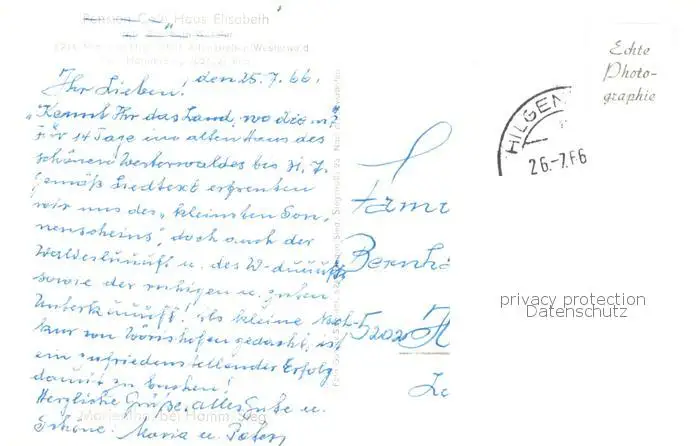 Pension Café Haus Elisabeth
den 25.7.66.
Ihr Lieben!
"Kennt Ihr das Land, wo die n?"
Für 14 Tage im alten Haus des
schönen Westerwaldes bis 31.7.
Gemäß Liedtext erfreuten
wir uns des "kleinsten Son-
nenscheins", doch auch der
Waldesluuuft u. des W-duuufts
sowie der ruhigen u. guten
Unterkuuuft! Als kleine Nach-
kur von Wörishofen gedacht, ist
ein zufriedenstellender Erfolg
damit zu buchen!
Herzliche Grüße, alles Gute u.
Schöne. Maria u. Peter
Marienthal bei Hamm Sieg
Echte
Photo-
graphie
HILGEN
26.-7.66
Fami
Bernha
5202
privacy protection
Datenschutz